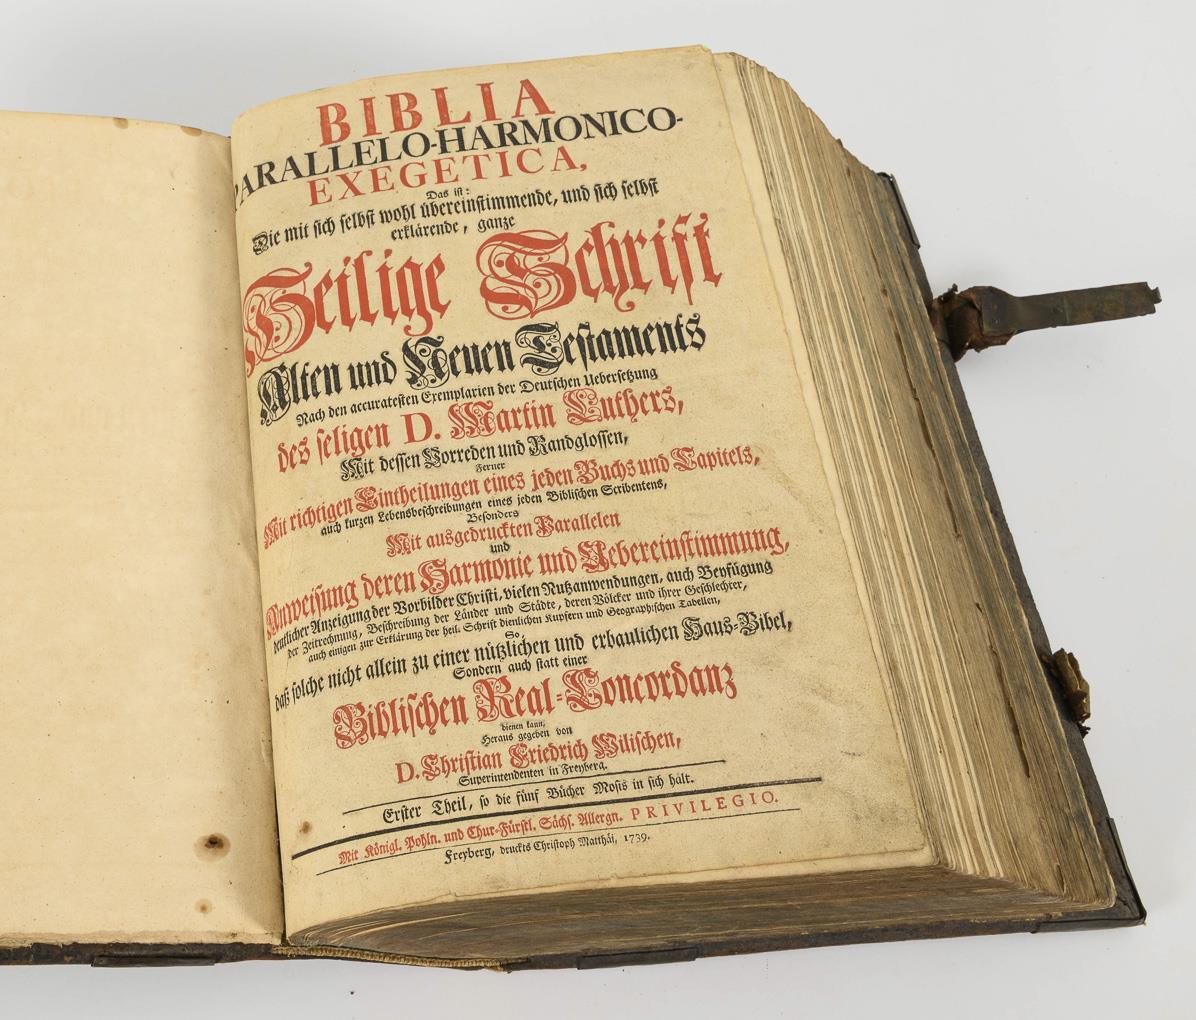 BIBLIA
PARALLELO-HARMONICO-
EXEGETICA,
Das ist:
Die mit sich selbst wohl übereinstimmende, und sich selbst
erklärende, ganze
Heilige Schrift
Alten und Neuen Testaments
Nach den accuratesten Exemplarien der Deutschen Uebersetzung
des seligen D. Martin Luthers,
Mit dessen Vorreden und Randglossen,
Ferner
Mit richtigen Eintheilungen eines jeden Buchs und Capitels,
auch kurzen Lebensbeschreibungen eines jeden Biblischen Scribentens,
Besonders
Mit ausgedruckten Parallelen
und
Anweisung deren Harmonie und Uebereinstimmung,
deutlicher Anzeigung der Vorbilder Christi, vielen Nutzanwendungen, auch Beyfügung
der Zeitrechnung, Beschreibung der Länder und Städte, deren Völcker und ihrer Geschlechter,
auch einigen zur Erklärung der heil. Schrift dienlichen Kupfern und Geographischen Tabellen,
So
daß solche nicht allein zu einer nützlichen und erbaulichen Haus-Bibel,
Sondern auch statt einer
Biblischen Real-Concordanz
dienen kann,
Heraus gegeben von
D. Christian Friedrich Wilischen,
Superintendenten in Freyberg.
Erster Theil, so die fünf Bücher Mosis in sich hält.
Mit Königl. Pohln. und Chur-Fürstl. Sächs. Allergn. PRIVILEGIO.
Freyberg, druckts Christoph Matthäi, 1739.